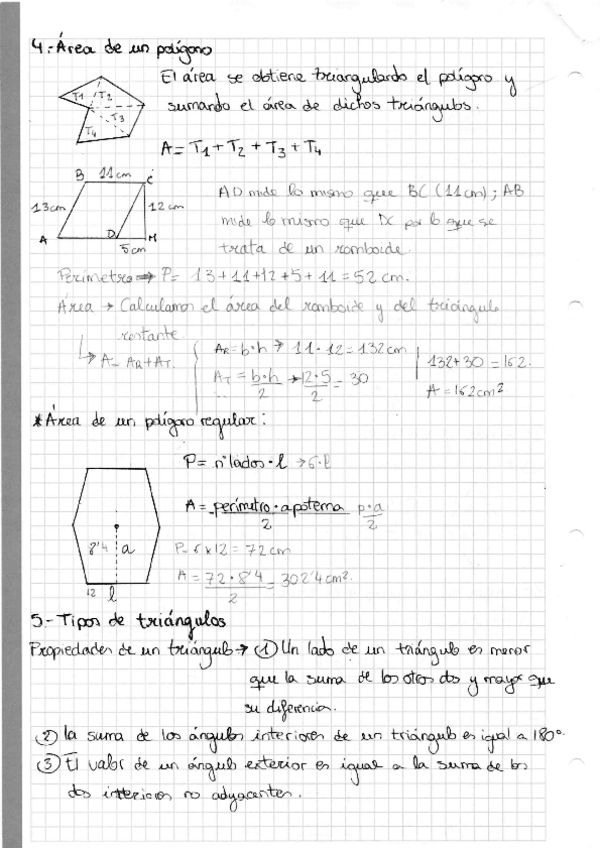 4.- Área de un polígono
El área se obtiene triangulando el polígono y
sumando el área de dichos triángulos.
T1 T2
T3
T4
A = T1 + T2 + T3 + T4
B 11cm C
13cm 12 cm
A D M
5cm
AD mide lo mismo que BC (11cm); AB
mide lo mismo que DC por lo que se
trata de un romboide.
Perímetro → P= 13+11+12+5+11=52 cm.
Área → Calculamos el área del romboide y del triángulo
restante.
A= AR+AT.
AR=b·h → 11·12=132cm
AT = b·h/2 → 12·5/2 = 30
132+30=162.
A=162cm²
* Área de un polígono regular:
P= nºlados·l → 6·l
A= perímetro·apotema/2 p·a/2
8'4 a
12 l
P= 6x12=72cm
A= 72·8'4/2 = 302'4cm².
5.- Tipos de triángulos
Propiedades de un triángulo → ① Un lado de un triángulo es menor
que la suma de los otros dos y mayor que
su diferencia.
② La suma de los ángulos interiores de un triángulo es igual a 180º.
③ El valor de un ángulo exterior es igual a la suma de los
dos interiores no adyacentes.